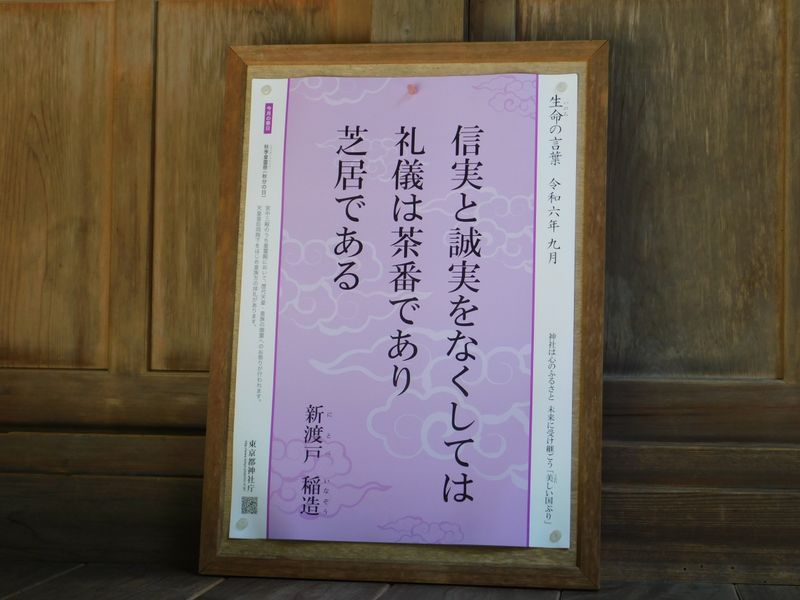 生命の言葉 令和六年 九月
いのち
神社は心のふるさと 未来に受け継ごう「美しい国ぶり」
信実と誠実をなくしては
礼儀は茶番であり
芝居である
新渡戸 稲造
にとべ いなぞう
今月の祭日
秋季皇霊祭(秋分の日)
東京都神社庁